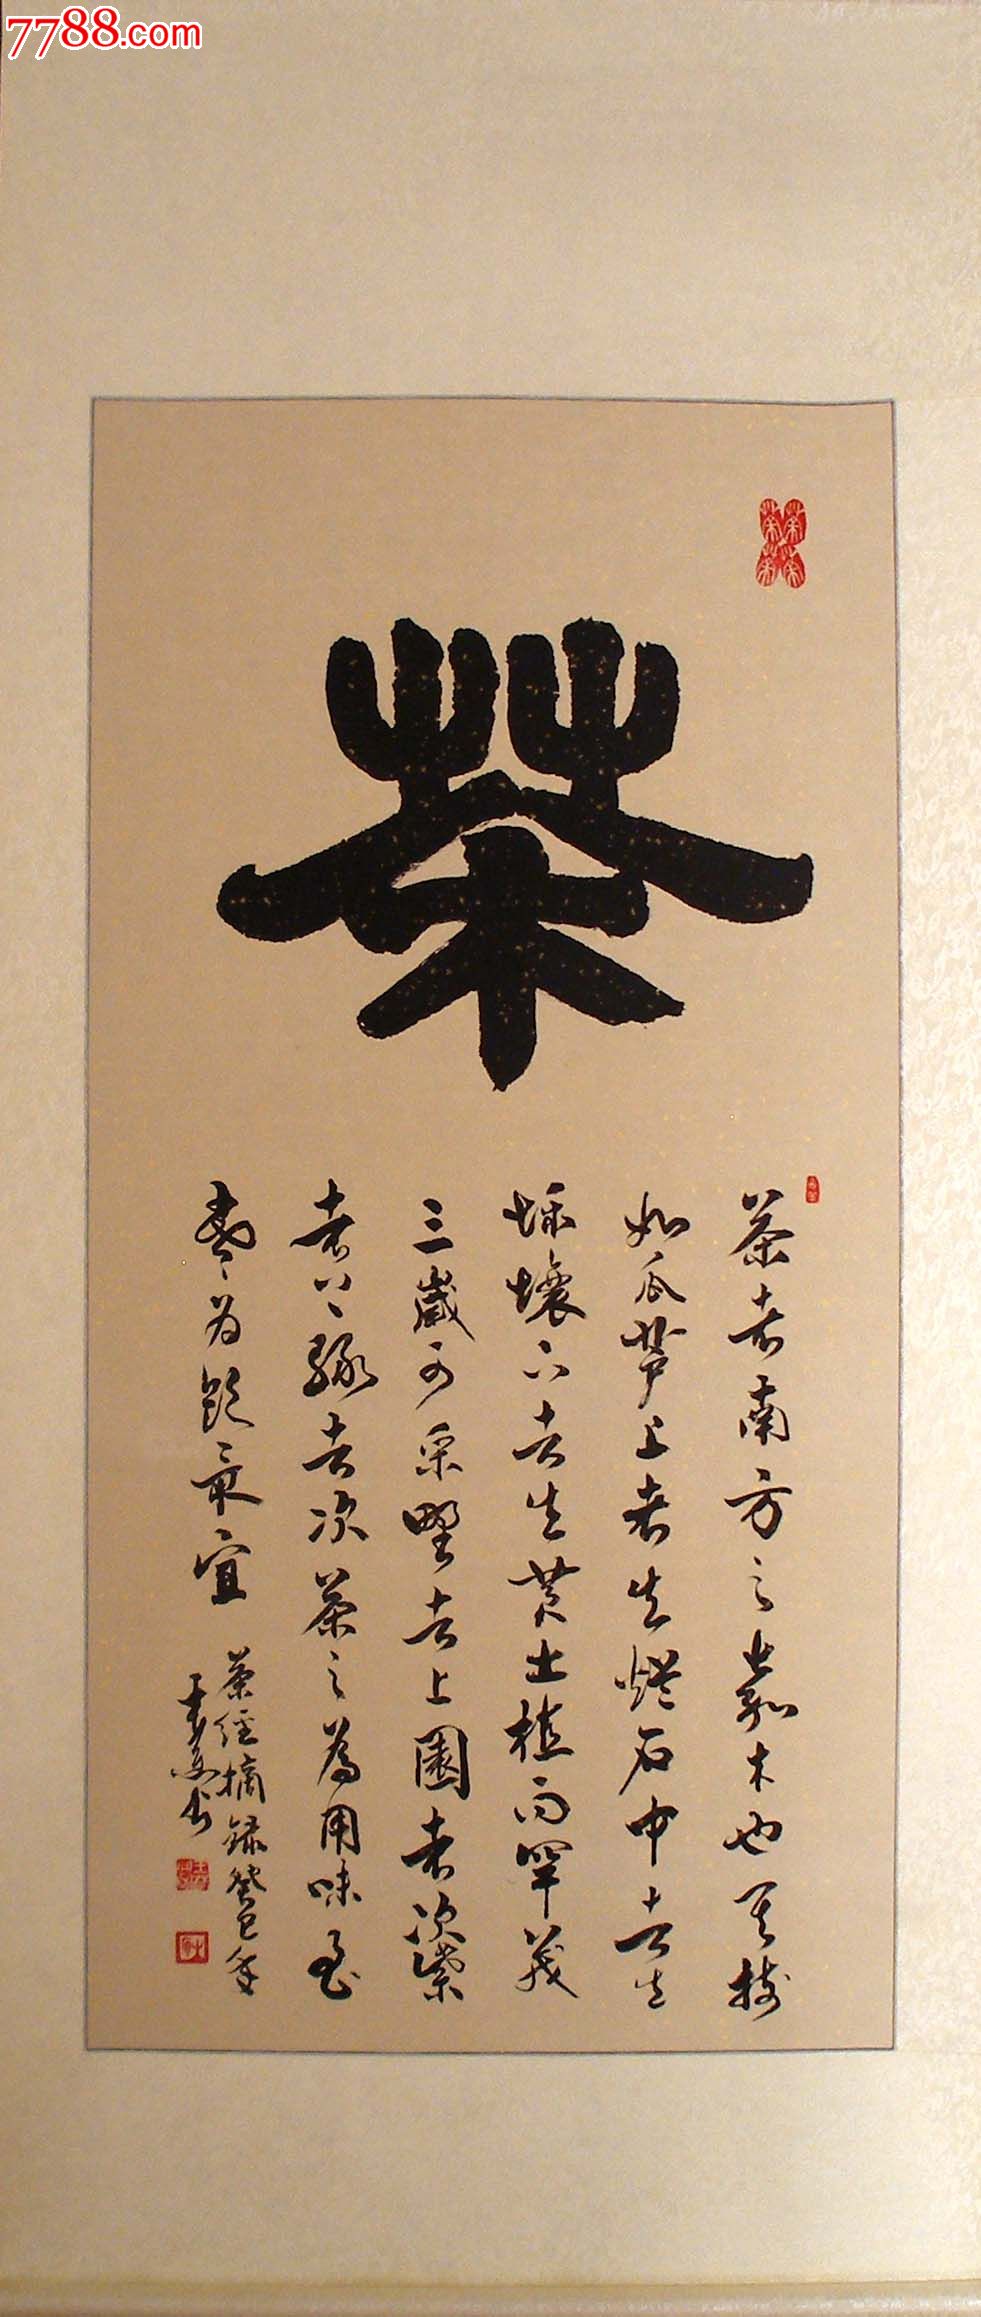 7788.com
茶
茶者南方之嘉木也其樹
如瓜芦上者生烂石中者生
壤下者生黄土植而罕茂
三歲可采野者上園者次紫
者上緑者次茶之為用味至
寒为飲最宜
茶經摘録癸巳年
書